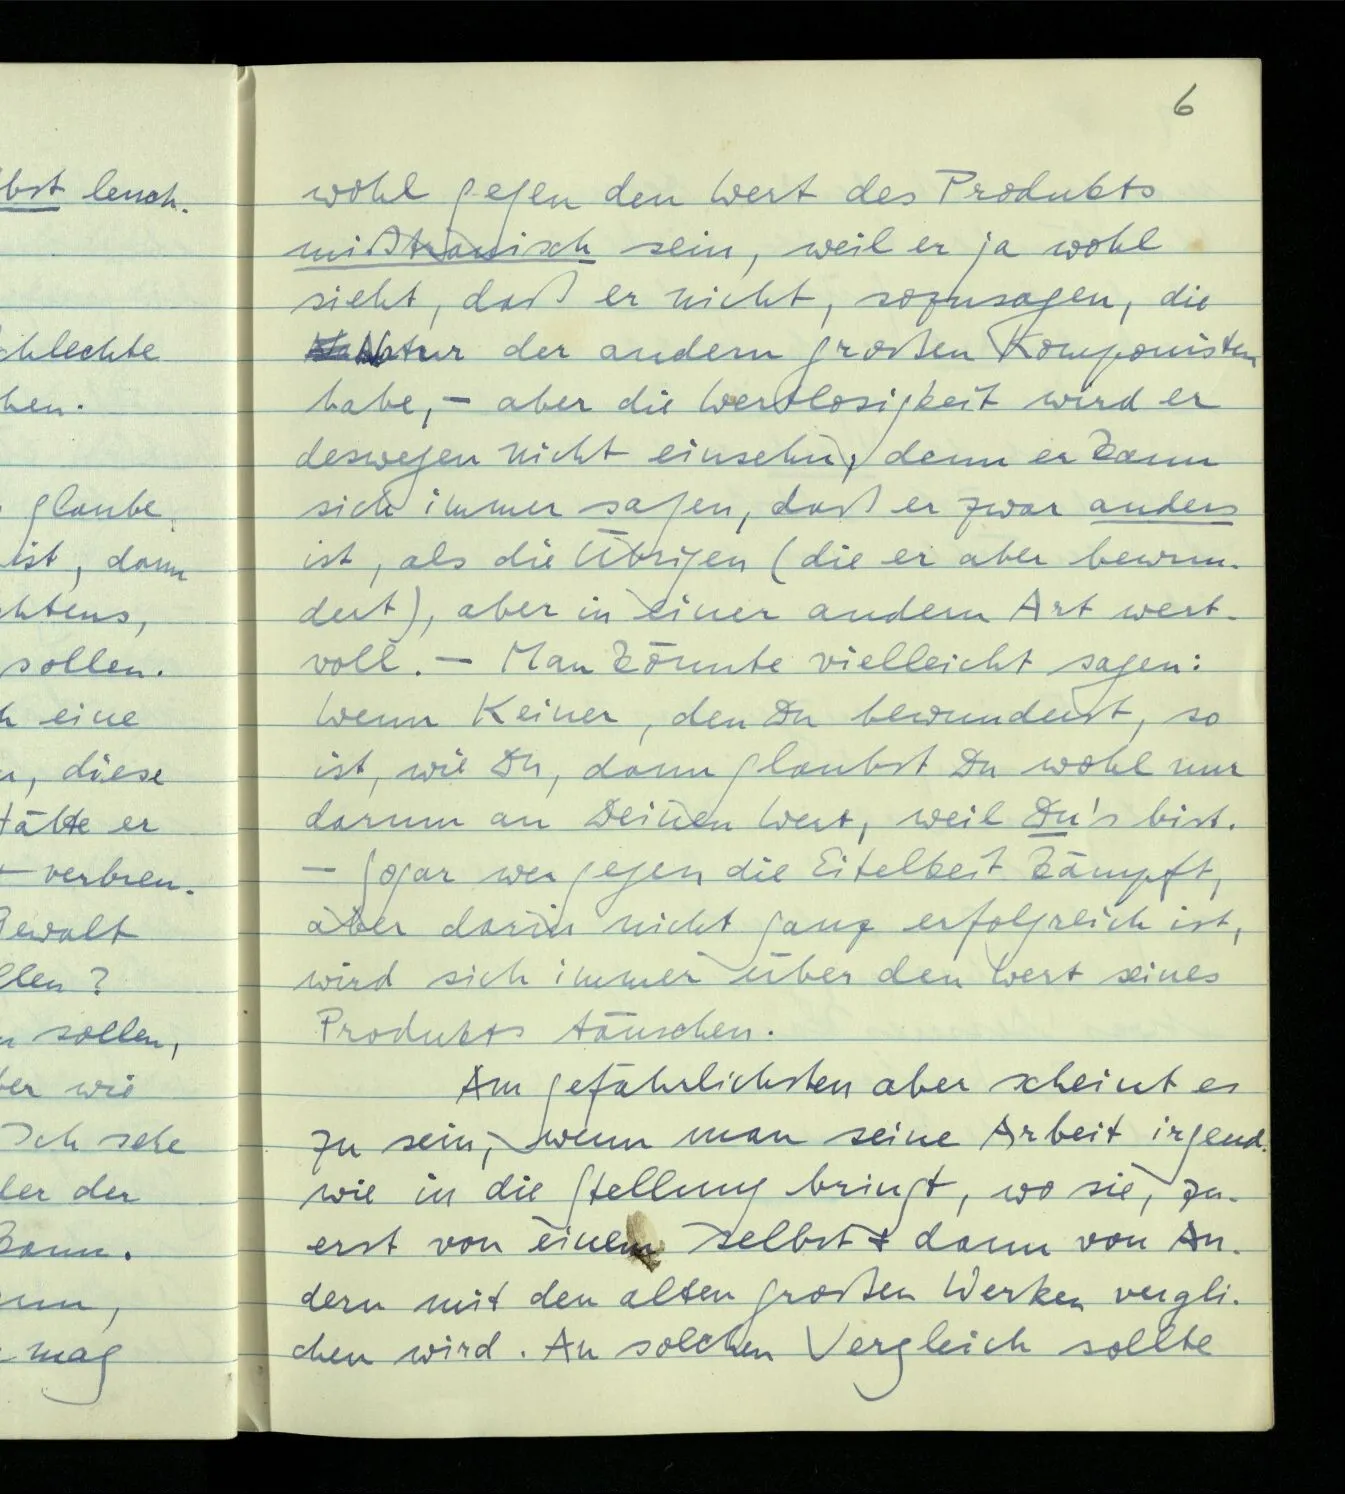 bst leuch-
chlechte
hen.
glaube
ist, dann
chtens,
sollen.
h eine
n, diese
Hätte er
verbren-
Gewalt
llen?
n sollen,
ber wie
Ich sehe
der der
kann.
mag
6
wohl gegen den Wert des Produkts
mißtrauisch sein, weil er ja wohl
sieht, daß er nicht, sozusagen, die
Natur der andern großen Komponisten
habe, – aber die Wertlosigkeit wird er
deswegen nicht einsehn, denn er kann
sich immer sagen, daß er zwar anders
ist, als die Übrigen (die er aber bewun-
dert), aber in einer andern Art wert-
voll. – Man könnte vielleicht sagen:
Wenn Keiner, den Du bewunderst, so
ist, wie Du, dann glaubst Du wohl nur
darum an Deinen Wert, weil Du's bist.
– Sogar wer gegen die Eitelkeit kämpft,
aber darin nicht ganz erfolgreich ist,
wird sich immer über den Wert seines
Produkts täuschen.
Am gefährlichsten aber scheint es
zu sein, wenn man seine Arbeit irgend-
wie in die Stellung bringt, wo sie, zu-
erst von einem selbst & dann von An-
dern mit den alten großen Werken vergli-
chen wird. An solchen Vergleich sollte